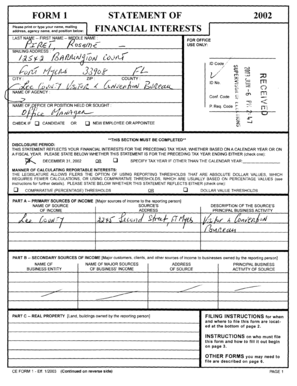 FORM 1 STATEMENT OF 2002
FINANCIAL INTERESTS
Please print or type your name, mailing
address, agency name, and position below:
FOR OFFICE
USE ONLY:
LAST NAME - FIRST NAME - MIDDLE NAME
Peret Rosanne
MAILING ADDRESS
Court
Fort Myers 33908 FL
CITY ZIP COUNTY
Lee County Visitor & Convention Bureau
NAME OF AGENCY
NAME OF OFFICE OR POSITION HELD OR SOUGHT
Office Manager
CHECK IF CANDIDATE OR NEW EMPLOYEE OR APPOINTEE
ID Code
ID No.
Conf. Code
P. Req. Code
RECEIVED
**THIS SECTION MUST BE COMPLETED**
DISCLOSURE PERIOD:
THIS STATEMENT REFLECTS YOUR FINANCIAL INTERESTS FOR THE PRECEDING TAX YEAR, WHETHER BASED ON A CALENDAR YEAR OR ON
A FISCAL YEAR. PLEASE STATE BELOW WHETHER THIS STATEMENT IS FOR THE PRECEDING TAX YEAR ENDING EITHER (check one):
DECEMBER 31, 2002 OR SPECIFY TAX YEAR IF OTHER THAN THE CALENDAR YEAR:
MANNER OF CALCULATING REPORTABLE INTERESTS:
THE LEGISLATURE ALLOWS FILERS THE OPTION OF USING REPORTING THRESHOLDS THAT ARE ABSOLUTE DOLLAR VALUES, WHICH
REQUIRES FEWER CALCULATIONS, OR USING COMPARATIVE THRESHOLDS, WHICH ARE USUALLY BASED ON PERCENTAGE VALUES (see
instructions for further details). PLEASE STATE BELOW WHETHER THIS STATEMENT REFLECTS EITHER (check one):
COMPARATIVE (PERCENTAGE) THRESHOLDS OR DOLLAR VALUE THRESHOLDS
PART A - PRIMARY SOURCES OF INCOME [Major sources of income to the reporting person]
NAME OF SOURCE OF INCOME
SOURCE'S ADDRESS
DESCRIPTION OF THE SOURCE'S PRINCIPAL BUSINESS ACTIVITY
Lee County Second Street Ft Myers Visitor & Convention
Bureau
PART B - SECONDARY SOURCES OF INCOME [Major customers, clients, and other sources of income to businesses owned by the reporting person]
NAME OF BUSINESS ENTITY
NAME OF MAJOR SOURCES OF BUSINESS' INCOME
ADDRESS OF SOURCE
PRINCIPAL BUSINESS ACTIVITY OF SOURCE
PART C - REAL PROPERTY [Land, buildings owned by the reporting person]
FILING INSTRUCTIONS for when
and where to file this form are locat-
ed at the bottom of page 2.
INSTRUCTIONS on who must file
this form and how to fill it out begin
on page 3.
OTHER FORMS you may need to
file are described on page 6.
CE FORM 1 - Eff. 1/2003 (Continued on reverse side) PAGE 1